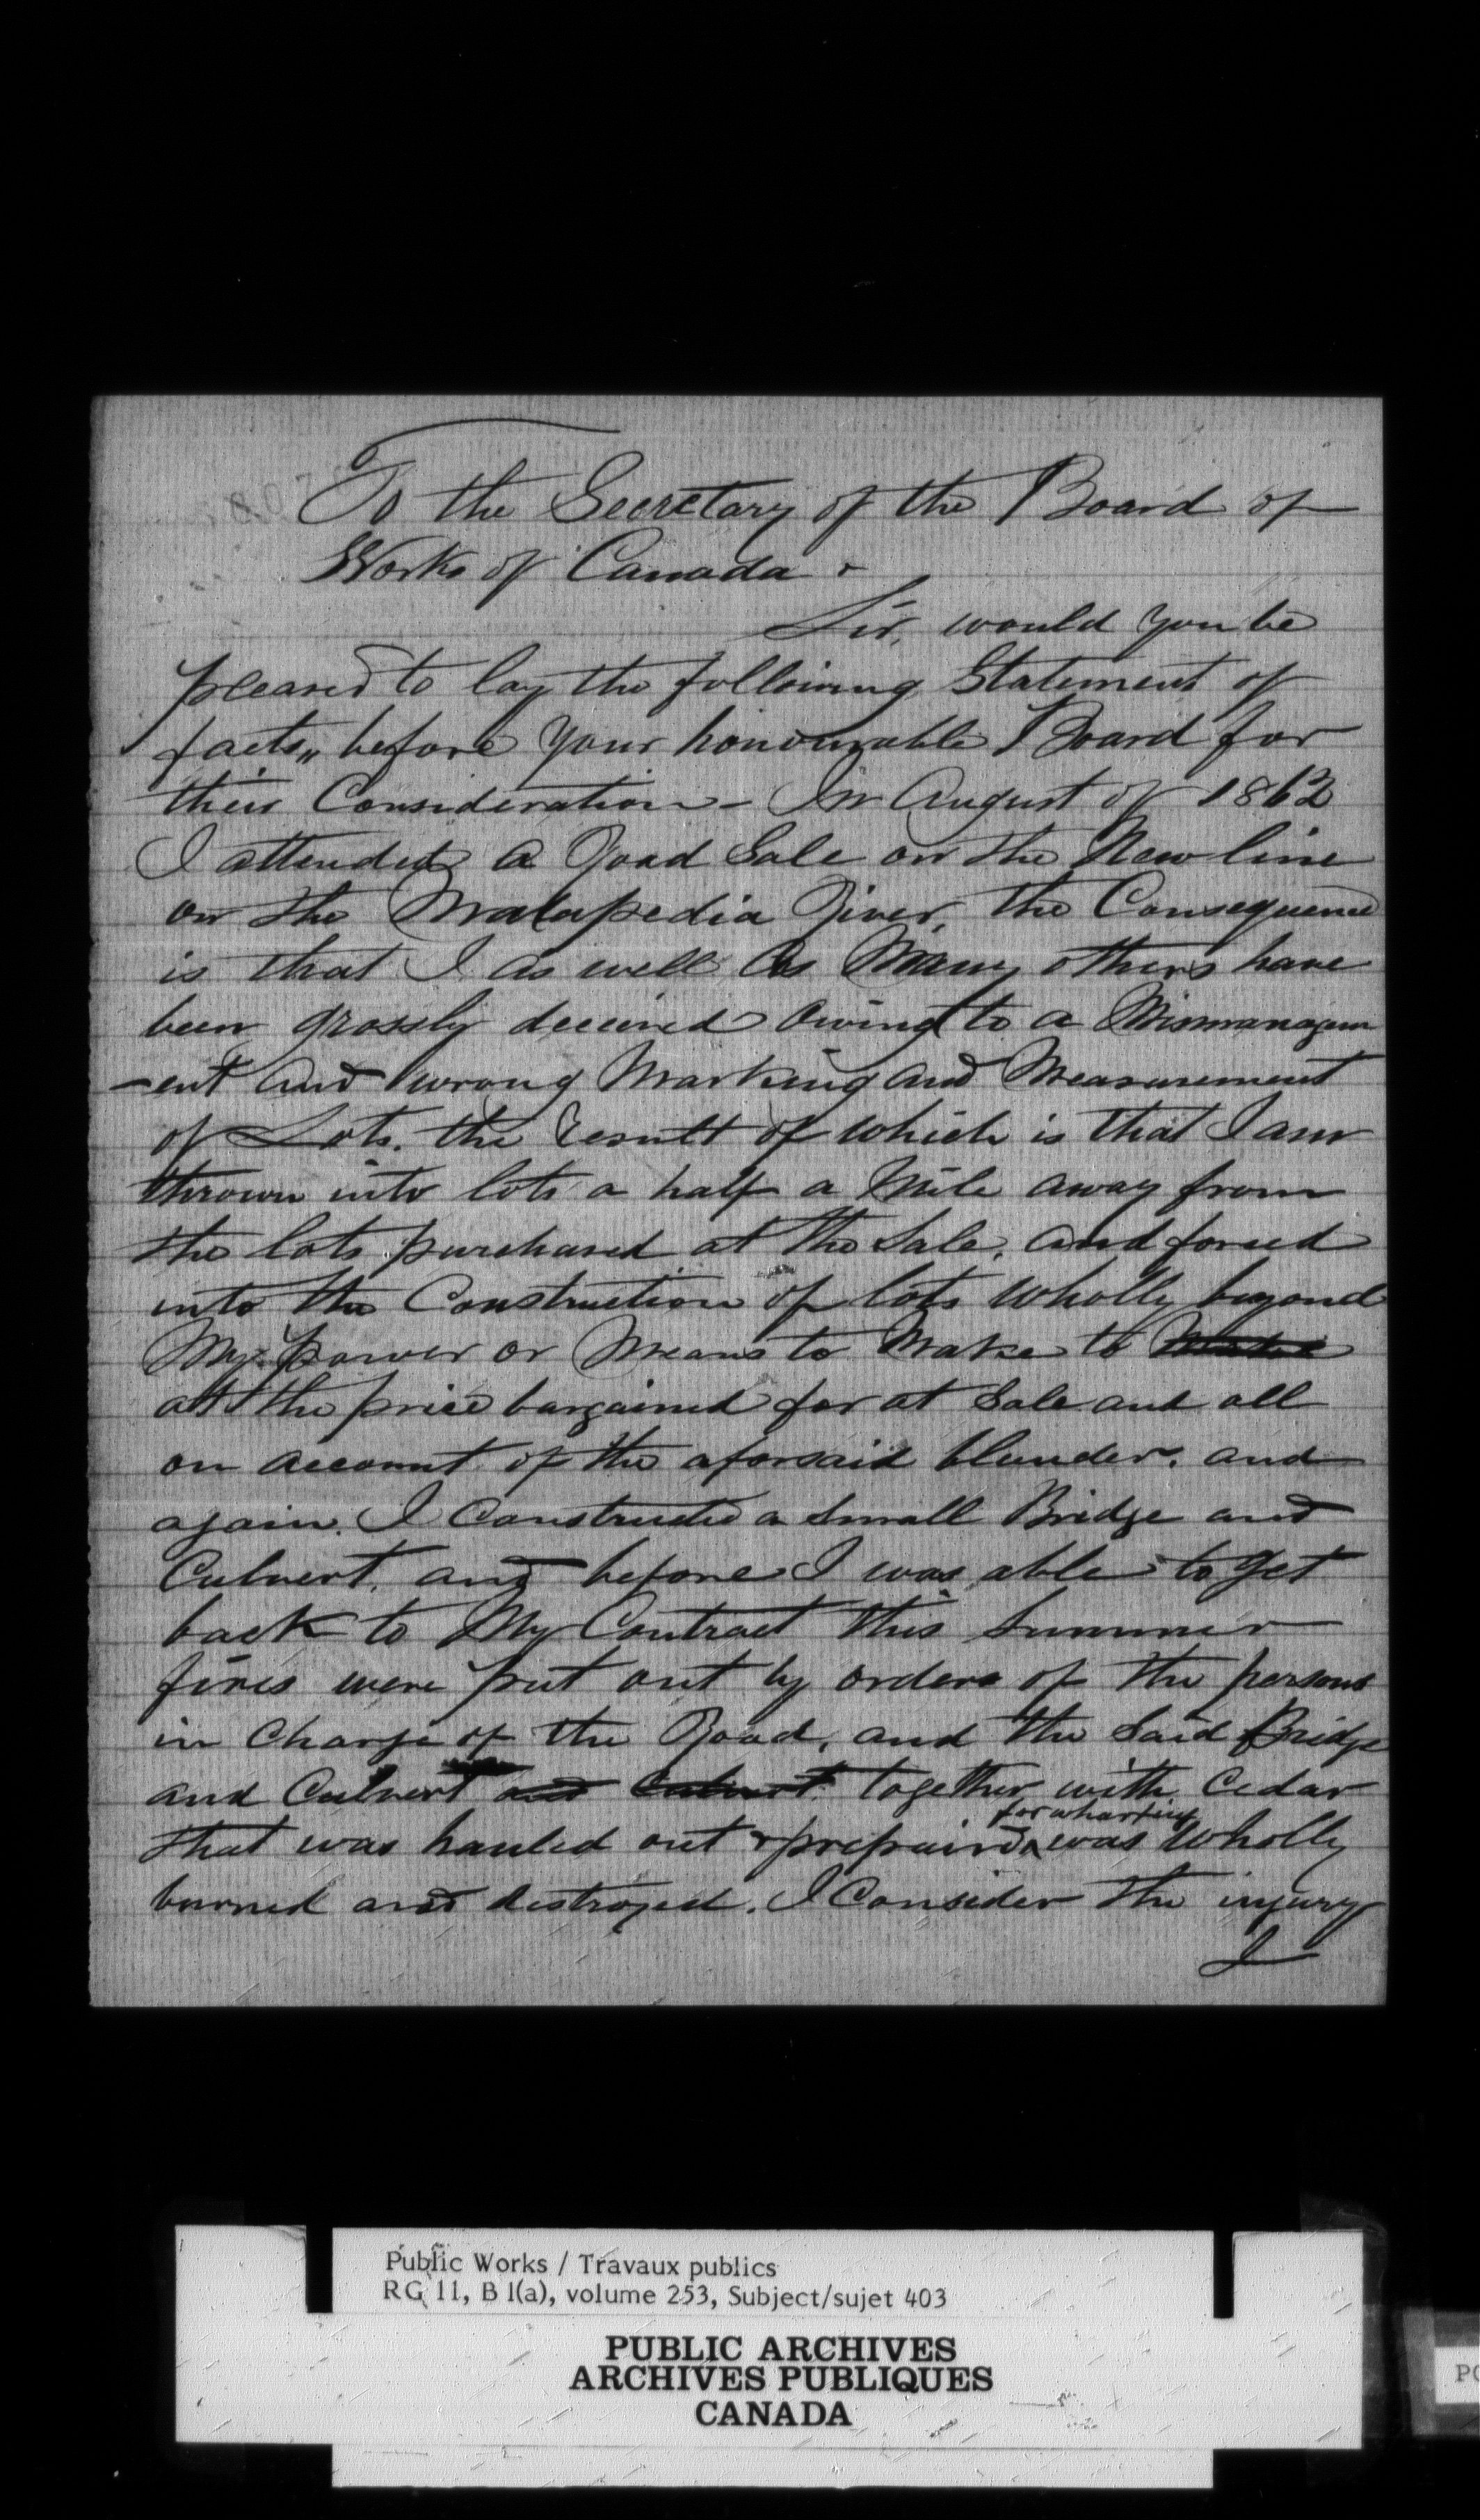 To the Secretary of the Board of
Works of Canada -
Sir, would you be
pleased to lay the following Statement of
facts,, before your honourable Board for
their Consideration - In August of 1862
I attended a Road Sale on the New line
on the Matapedia River, the Consequence
is that I as well as Many others have
been grossly deceived owing to a Mismanagem
-ent and wrong Marking and Measurement
of Lots. the result of which is that I am
thrown into lots a half a Mile away from
the lots purchased at the Sale, and forced
into the Construction of lots wholly beyond
My power or Means to Make to
at the price bargained for at Sale and all
on account of the aforsaid blunder. and
again. I Constructed a Small Bridge and
Culvert, and before I was able to get
back to My Contract this Summer
fires were put out by orders of the persons
in Charge of the Road, and the Said Bridge
and Culvert and Culvert together with Cedar
for wharfing
that was hauled out & prepaired was wholly
burned and destroyed. I Consider the injury
I
Public Works / Travaux publics
RG 11, B 1(a), volume 253, Subject/sujet 403
PUBLIC ARCHIVES
ARCHIVES PUBLIQUES
CANADA